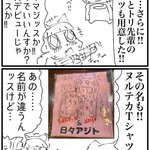 …さらに!!
とトリ先輩の
ツも用意した!!
マジッスか!!
いいんすか?
デビューじゃ
ッスか!!
その名も!!
ヌルテカTシャツ
日々アジト
あの……
名前が違うん
ッスけど…